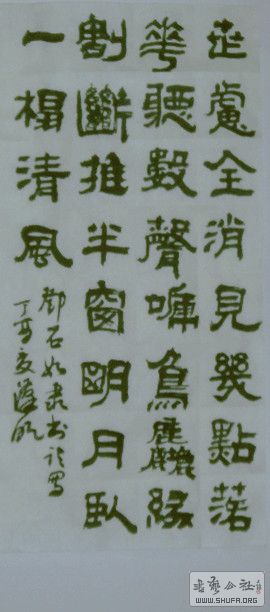 世慮全消見幾點落
華聽數聲嗁鳥塵緣
割斷推半窗明月臥
一榻清風
鄧石如隸書
丁亥夏
书艺公社
WWW.SHUFA.ORG